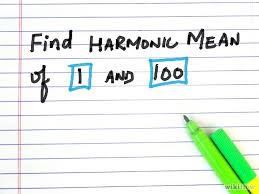 Find HARMONIC MEAN
of 1 AND 100
wikiHow